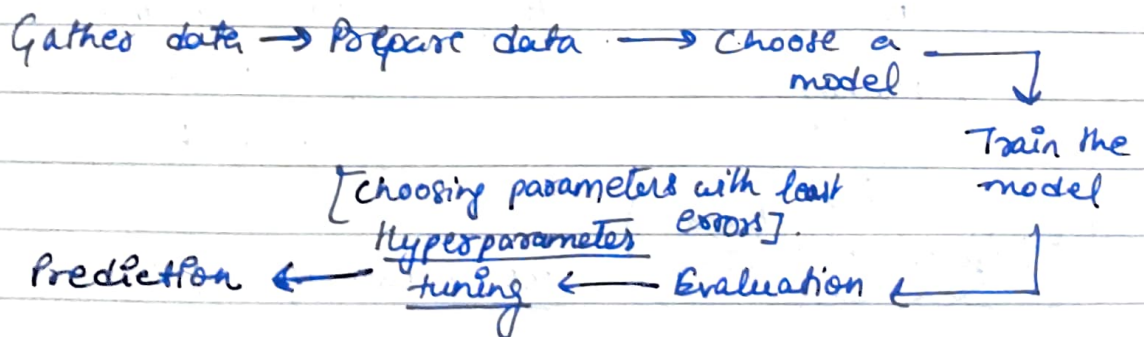 Gather data → Prepare data → Choose a
model
Train the
model
[Choosing parameters with least
errors].
Hyperparameter
Prediction ← tuning ← Evaluation